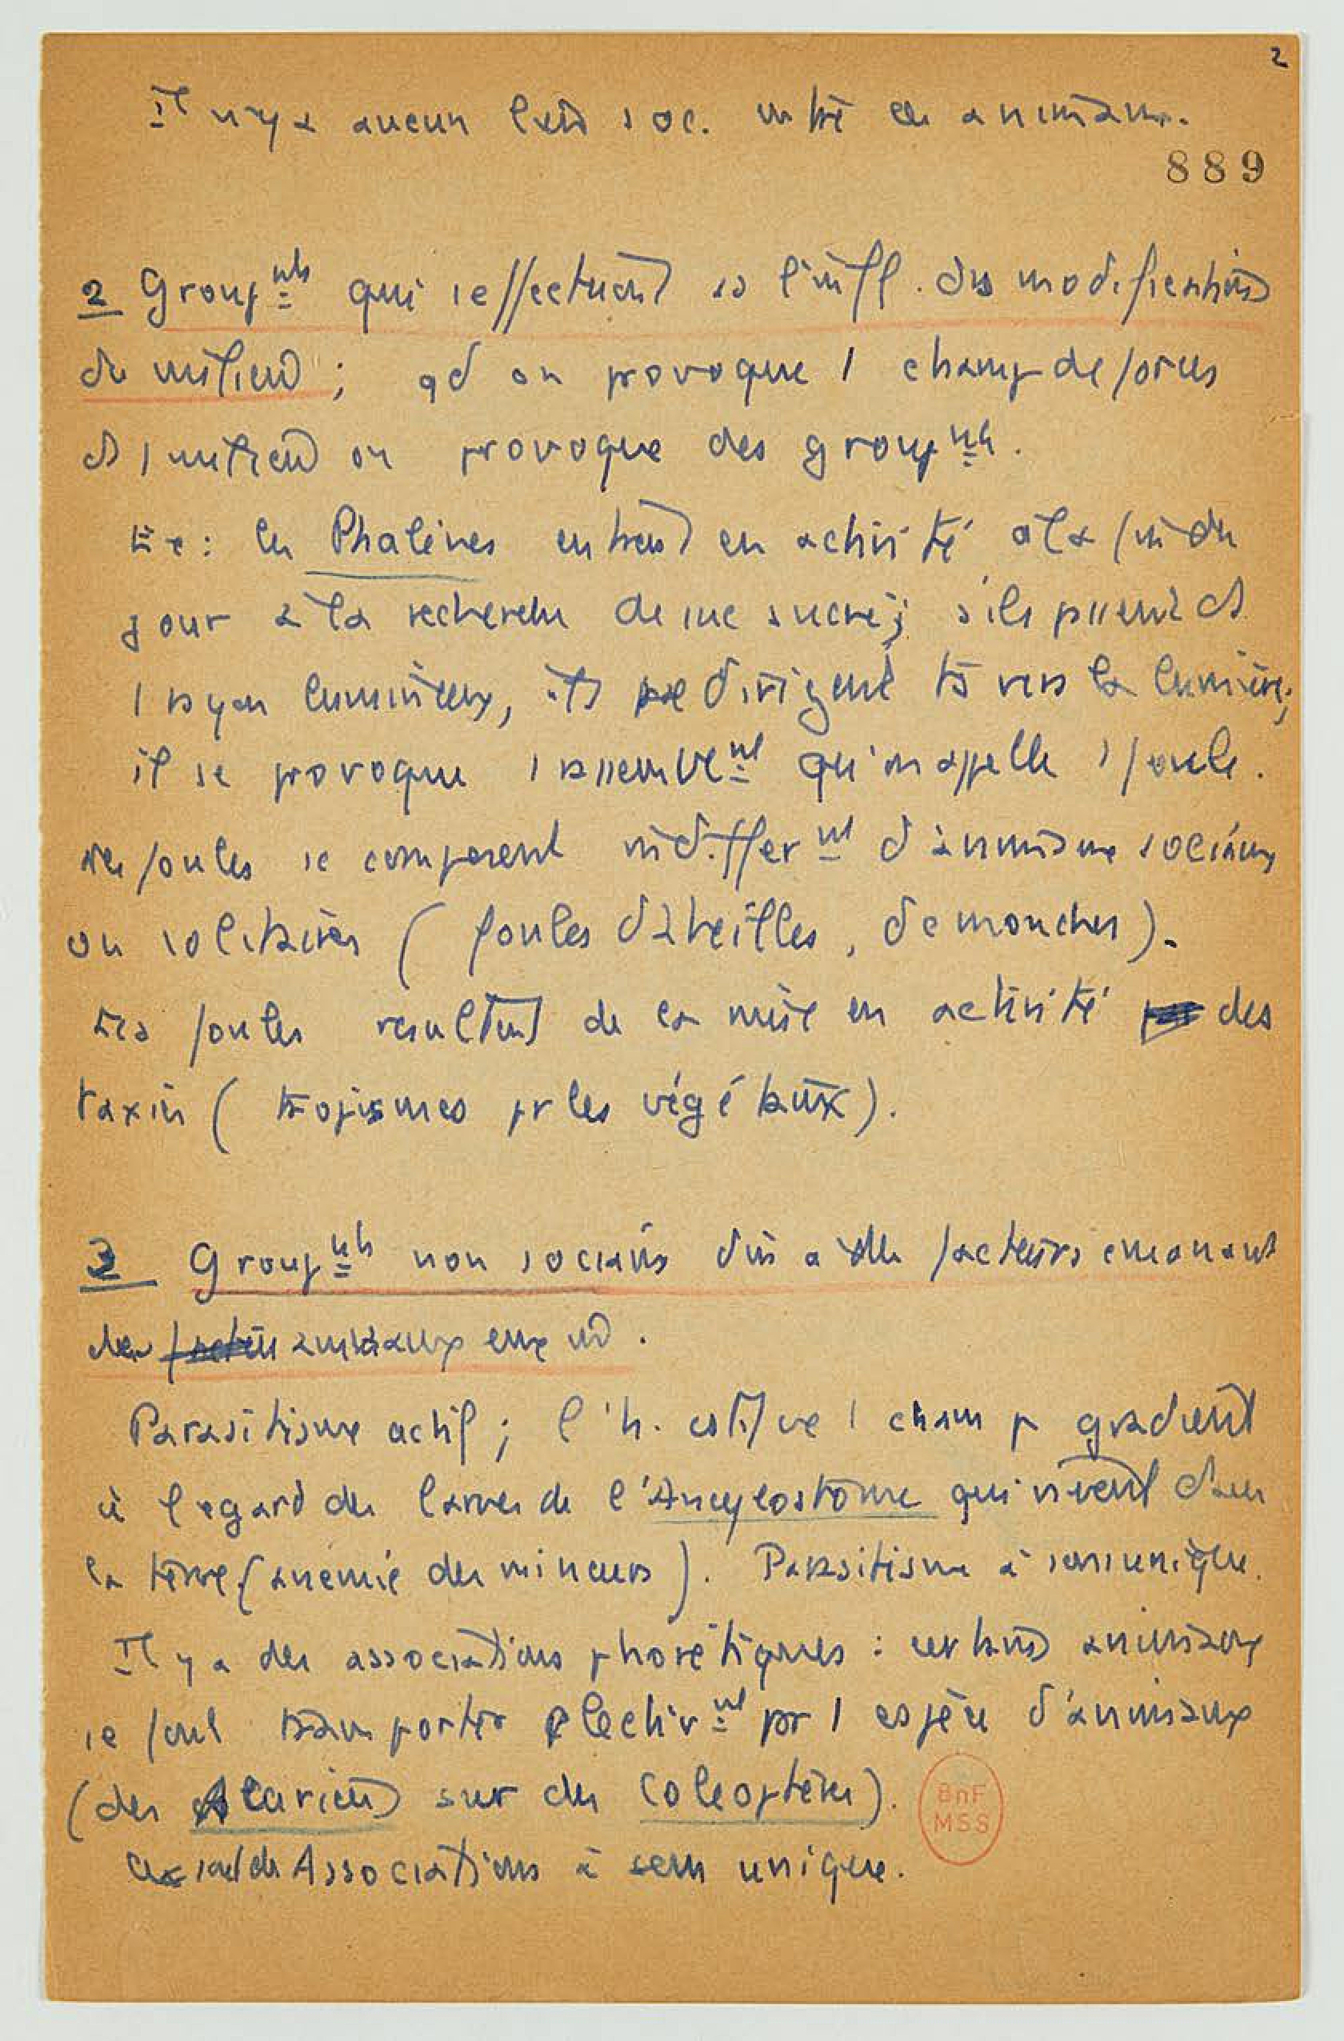 2
Il n'y a aucun lien soc. entre ces animaux.
889
2 Group^nts qui s'effectuent ss l'infl. des modifications
du milieu ; qd on provoque 1 champ de forces
ds 1 milieu on provoque des group^nts.
Ex : les Phalènes entrent en activité à la fin du
jour à la recherche de suc sucré ; s'ils passent ds
1 rayon lumineux, ils se dirigent ts vers la lumière ;
il se provoque 1 rassemble^nt qu'on appelle 1 foule.
des foules se composent indiffer^nt d'animaux sociaux
ou solitaires ( foules d'abeilles, de mouches ).
Les foules resultent de la mise en activité des
taxies ( tropismes pr les végétaux ).
3 Group^nts non sociaux dus à des facteurs émanant
des animaux eux m̂.
Parasitisme actif ; l'h. est 1 champ gradient
à l'egard des larves de l'Ancylostome qui vivent dans
la terre ( anémie des mineurs ). Parasitisme à sens unique.
Il y a des associations phorétiques : certains animaux
se font transporter électiv^nt par 1 espèce d'animaux
(des Acariens sur des Coleoptères).
BnF
MSS
ce sont des Associations à sens unique.